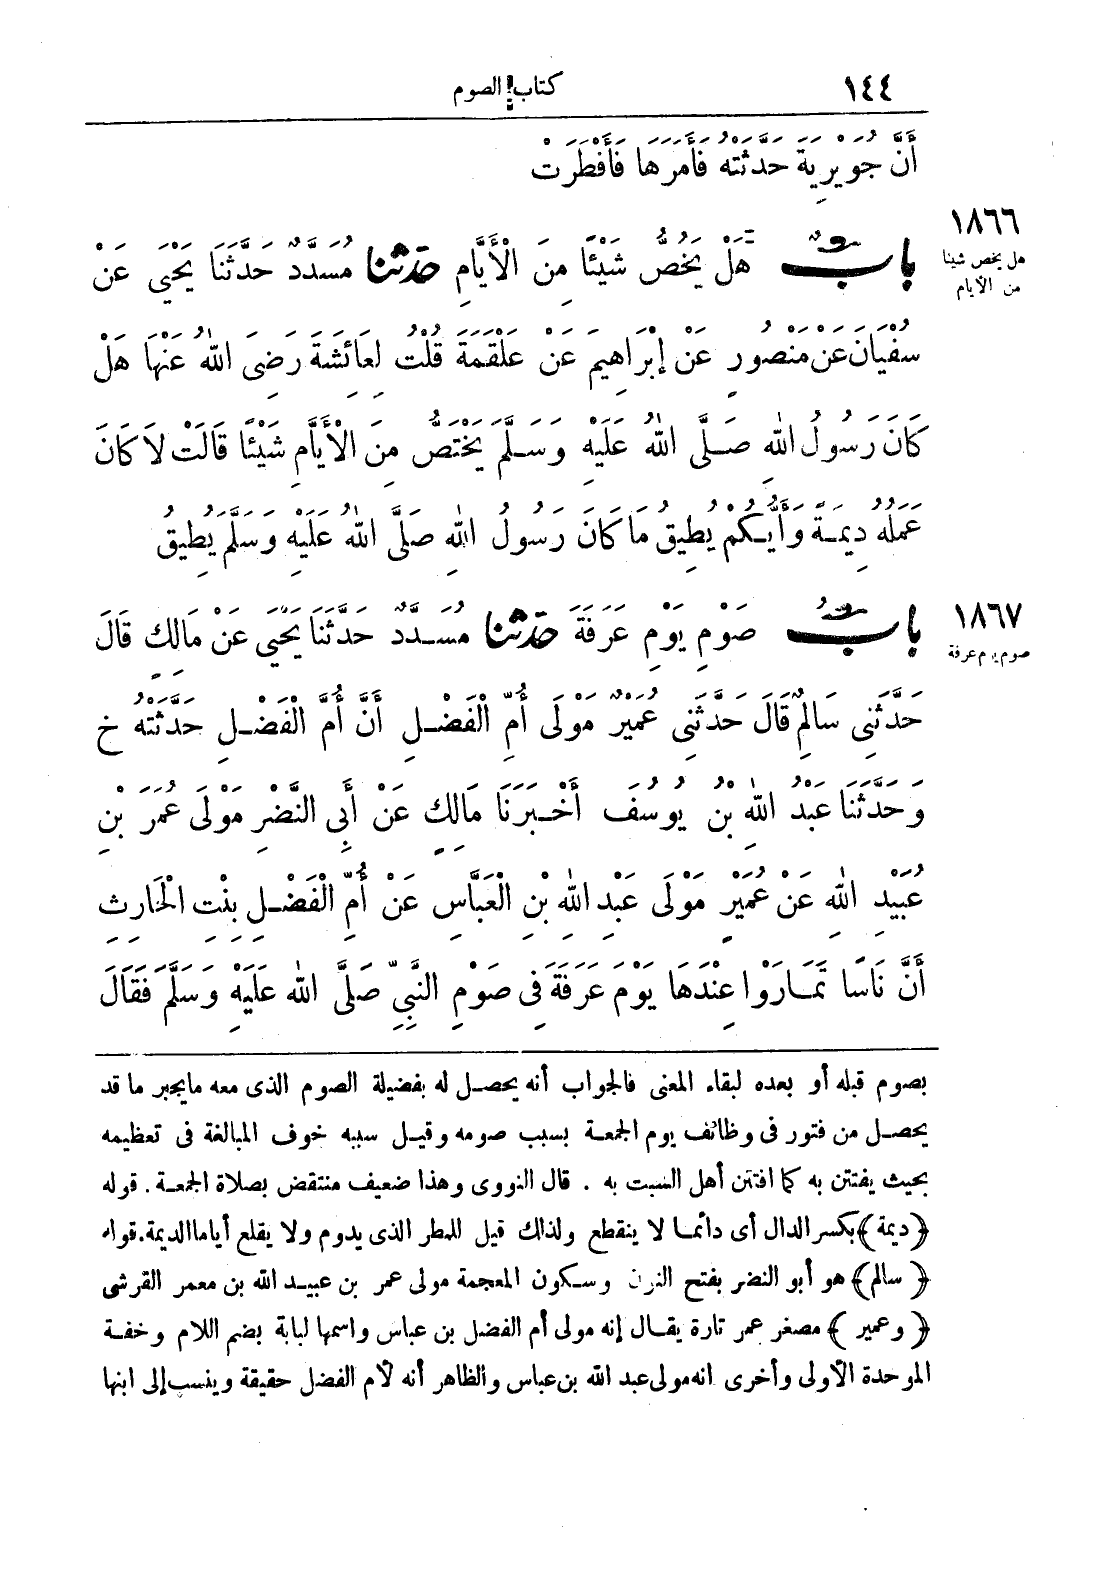 ١٤٤
كتاب الصوم
أَنَّ جُوَيْرِيَةَ حَدَّثَتْهُ فَأَمَرَهَا فَأَفْطَرَتْ
١٨٦٦
هل يخص شيئا
من الأيام
بابٌ هَلْ يَخُصُّ شَيْئًا مِنَ الْأَيَّامِ حَدَّثَنَا مُسَدَّدٌ حَدَّثَنَا يَحْيَى عَنْ
سُفْيَانَ عَنْ مَنْصُورٍ عَنْ إِبْرَاهِيمَ عَنْ عَلْقَمَةَ قُلْتُ لِعَائِشَةَ رَضِىَ اللهُ عَنْهَا هَلْ
كَانَ رَسُولُ اللهِ صَلَّى اللهُ عَلَيْهِ وَسَلَّمَ يَخْتَصُّ مِنَ الْأَيَّامِ شَيْئًا قَالَتْ لَا كَانَ
عَمَلُهُ دِيمَةً وَأَيُّكُمْ يُطِيقُ مَا كَانَ رَسُولُ اللهِ صَلَّى اللهُ عَلَيْهِ وَسَلَّمَ يُطِيقُ
١٨٦٧
صوم يوم عرفة
بابُ صَوْمِ يَوْمِ عَرَفَةَ حَدَّثَنَا مُسَدَّدٌ حَدَّثَنَا يَحْيَى عَنْ مَالِكٍ قَالَ
حَدَّثَنِى سَالِمٌ قَالَ حَدَّثَنِى عُمَيْرٌ مَوْلَى أُمِّ الْفَضْلِ أَنَّ أُمَّ الْفَضْلِ حَدَّثَتْهُ خ
وَحَدَّثَنَا عَبْدُ اللهِ بْنُ يُوسُفَ أَخْبَرَنَا مَالِكٌ عَنْ أَبِى النَّضْرِ مَوْلَى عُمَرَ بْنِ
عُبَيْدِ اللهِ عَنْ عُمَيْرٍ مَوْلَى عَبْدِ اللهِ بْنِ الْعَبَّاسِ عَنْ أُمِّ الْفَضْلِ بِنْتِ الْحَارِثِ
أَنَّ نَاسًا تَمَارَوْا عِنْدَهَا يَوْمَ عَرَفَةَ فِى صَوْمِ النَّبِىِّ صَلَّى اللهُ عَلَيْهِ وَسَلَّمَ فَقَالَ
بصوم قبله أو بعده لبقاء المعنى فالجواب أنه يحصل له بفضيلة الصوم الذى معه مايجبر ما قد
يحصل من فتور فى وظائف يوم الجمعة بسبب صومه وقيل سببه خوف المبالغة فى تعظيمه
بحيث يفتتن به كما افتتن أهل السبت به . قال النووى وهذا ضعيف منتقض بصلاة الجمعة . قوله
﴿ديمة﴾ بكسر الدال أى دائما لا ينقطع ولذلك قيل للمطر الذى يدوم ولا يقلع أياما الديمة . قوله
﴿سالم﴾ هو أبو النضر بفتح النون وسكون المعجمة مولى عمر بن عبيد الله بن معمر القرشى
﴿وعمير﴾ مصغر عمر تارة يقال إنه مولى أم الفضل بن عباس واسمها لبابة بضم اللام وخفة
الموحدة الأولى وأخرى انه مولى عبد الله بن عباس والظاهر أنه لأم الفضل حقيقة وينسب إلى ابنها